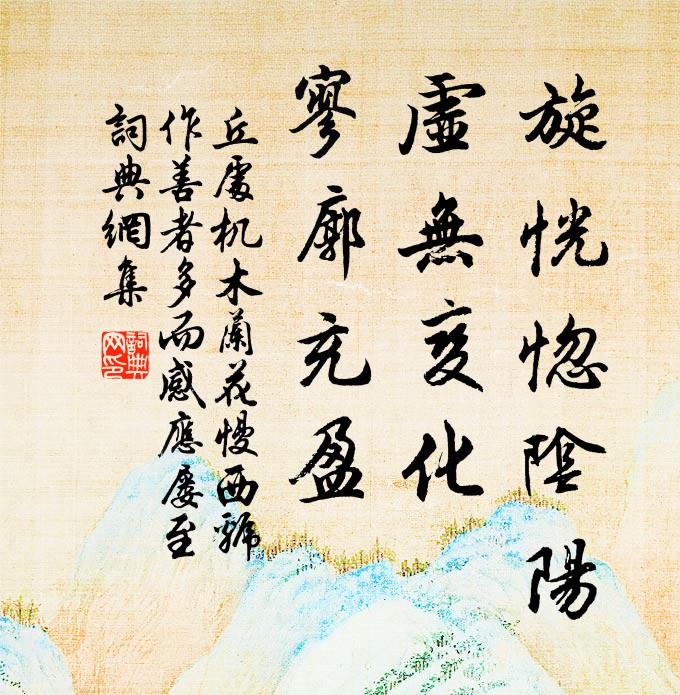 旋恍惚陰陽
虛無變化
寥廓充盈
丘處机木蘭花慢西虢
作善者多而感應屢至
詞典網集
詞典網印